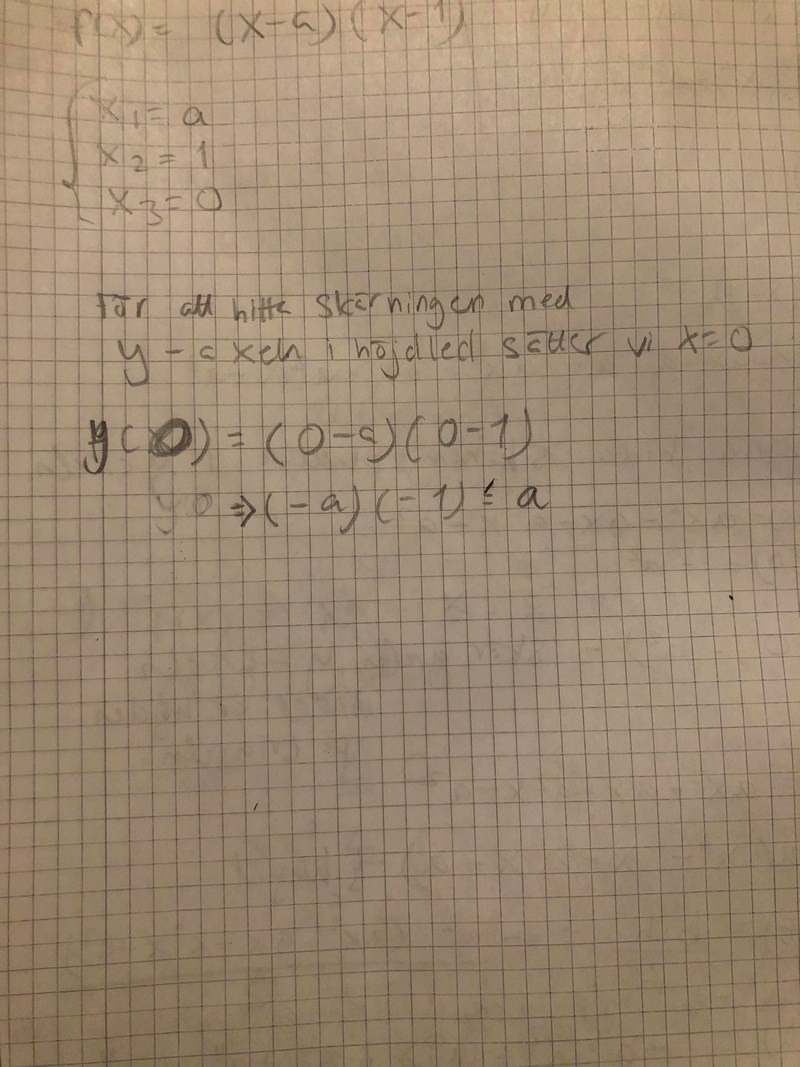 f(x) = (x-a)(x-1)
x₁ = a
x₂ = 1
x₃ = 0
För att hitta skärningen med
y-axeln i höjdled sätter vi x=0
y(0) = (0-a)(0-1)
⇒ (-a)(-1) = a